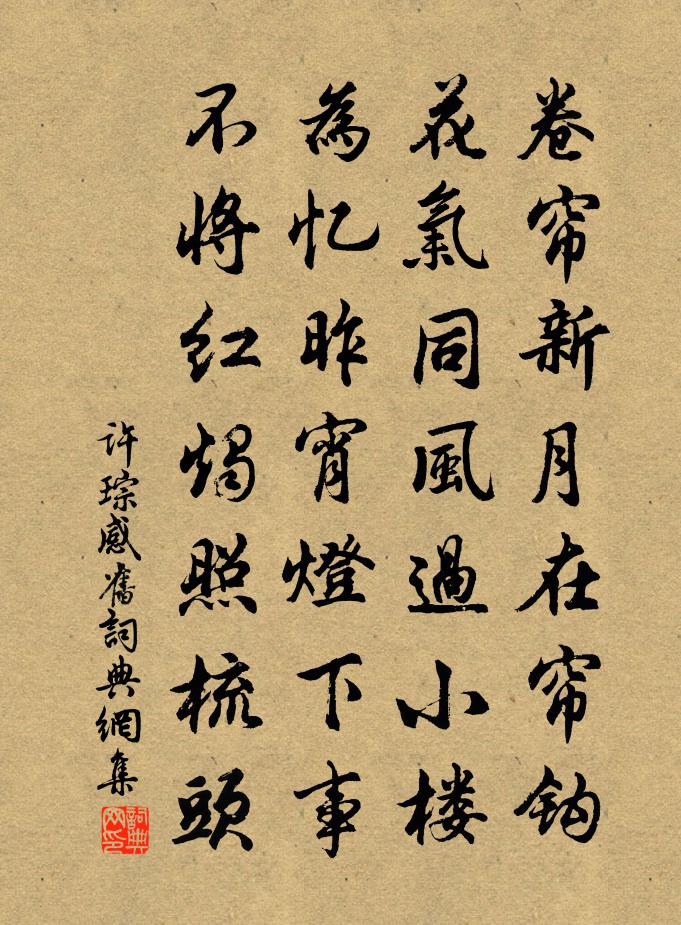 卷帘新月在帘钩
花氣同風過小楼
為忆昨宵燈下事
不将红燭照梳頭
许琮感舊詞典網集
詞典网印